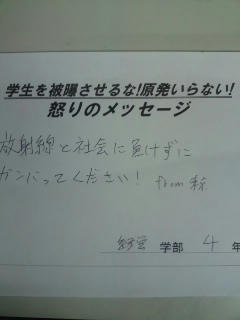 学生を被曝させるな!原発いらない!
怒りのメッセージ
放射線と社会に負けずに
ガンバってください! from 稼
経営 学部 4 年